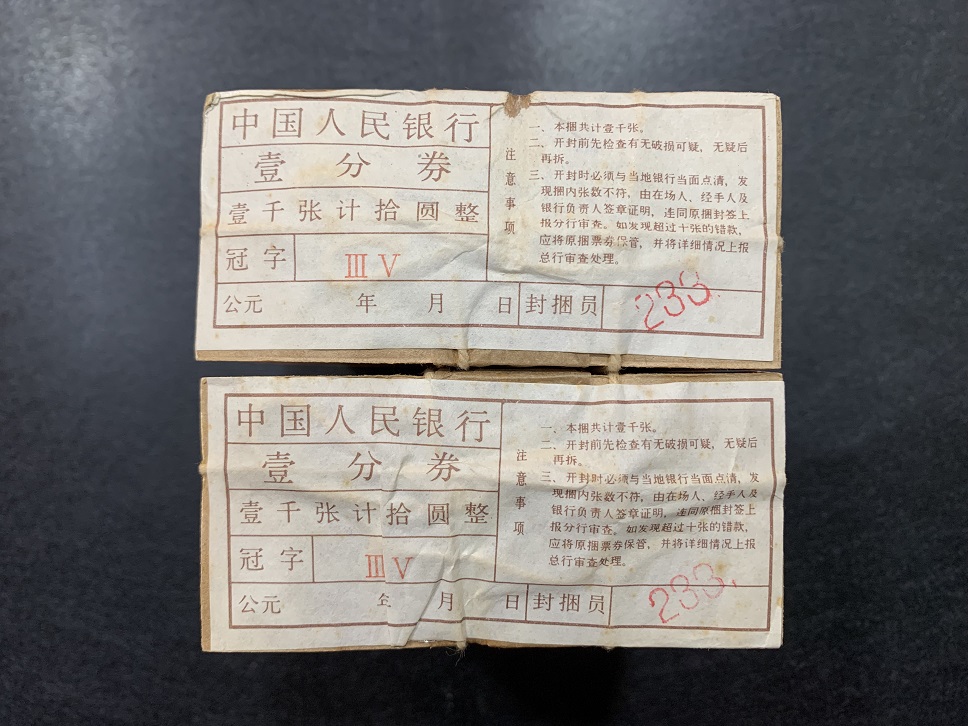 中国人民银行
壹分券
壹千张计拾圆整
冠字 ⅢⅤ
公元 年 月 日 封捆员 233.
注意事项
一、本捆共计壹千张。
二、开封前先检查有无破损可疑，无疑后
再拆。
三、开封时必须与当地银行当面点清，发
现捆内张数不符，由在场人、经手人及
银行负责人签章证明，连同原捆封签上
报分行审查。如发现超过十张的错款，
应将原捆票券保管，并将详细情况上报
总行审查处理。
中国人民银行
壹分券
壹千张计拾圆整
冠字 ⅢⅤ
公元 年 月 日 封捆员 233.
注意事项
一、本捆共计壹千张。
二、开封前先检查有无破损可疑，无疑后
再拆。
三、开封时必须与当地银行当面点清，发
现捆内张数不符，由在场人、经手人及
银行负责人签章证明，连同原捆封签上
报分行审查。如发现超过十张的错款，
应将原捆票券保管，并将详细情况上报
总行审查处理。